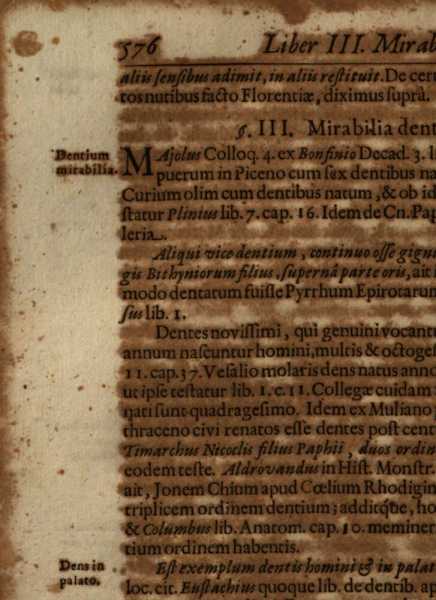 576 Liber III. Mirab
aliis sensibus adimit, in aliis restituit. De cer
tos nutibus facto Florentiæ, diximus suprà.
§. III. Mirabilia dent
Dentium
mirabilia.
MAjolus Colloq. 4. ex Bonfinio Decad. 3. l
puerum in Piceno cum sex dentibus na
Curium olim cum dentibus natum, & ob id
statur Plinius lib. 7. cap. 16. Idem de Cn. Pap
leria.
Aliqui vice dentium, continuo osse gign
gis Bithyniorum filius, supernâ parte oris, ait
modo dentatum fuisse Pyrrhum Epirotarum
sus lib. 1.
Dentes novissimi, qui genuini vocant
annum nascuntur homini, multis & octoges
11. cap. 37. Vesalio molaris dens natus anno
ut ipse testatur lib. 1. c. 11. Collegæ cuidam
nati sunt quadragesimo. Idem ex Muliano
thraceno civi renatos esse dentes post cent
Timarchus Nicoclis filius Paphii, duos ordin
eodem teste. Aldrovandus in Hist. Monstr.
ait, Jonem Chium apud Cœlium Rhodigin
triplicem ordinem dentium; additq́be, ho
& Columbus lib. Anatom. cap. 10. meminer
tium ordinem habentis.
Dens in
palato.
Est exemplum dentis homini & in palat
loc. cit. Eustachius quoque lib. de dentib. ap